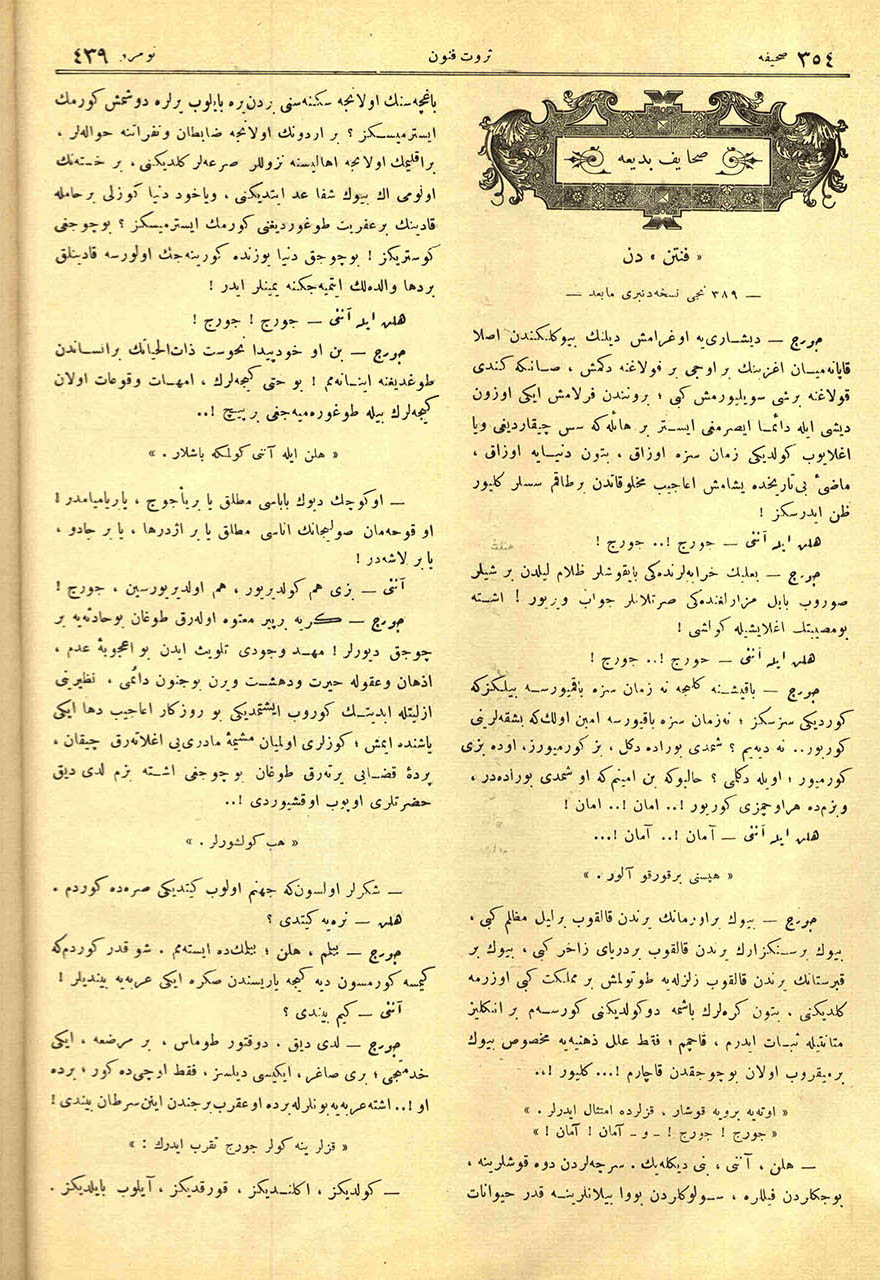 صحیفه ٣٥٤
ثروت فنون
نومرو ٤٣٩
صحایف بدیعه
« فنتن » دن
— ٣٨٩ نجی نسخه‌دنبری مابعد —
جورج — دیشاری‌یه اوغرامش دیلنك بیوكلكندن اصلا
قاپانه‌میان اغزینك بر اوجی بر قولاغنه دكمش ، صانكه كندی
قولاغنه برشی سویلیورمش كبی ؛ برونندن فرلامش ایكی اوزون
دیشی ایله دائما ایصرمغی ایستر بر هائله‌كه سس چیقاردیغی ویا
اغلایوب كولدیكی زمان سزه اوزاق ، بتون دنیایه اوزاق ،
ماضیٔ بی‌تاریخده یشامش اعاجیب مخلوقاتدن برطاقم سسلر كلیور
ظن ایدرسكز !
هلن ایله آننی — جورج !.. جورج !
جورج — بعلبك خرابه‌لرنده‌كی بایقوشلر ظلام لیلدن بر شیلر
صوروب بابل مزارلغنده‌كی صرتلانلر جواب ویریور ! اشته
بومصیبتك اغلایشیله كواشی !
هلن ایله آننی — جورج !.. جورج !
جورج — باقیشنه كلنجه نه زمان سزه باقیورسه بیلكزكه
كوردیكی سز سكز ؛ نه‌زمان سزه باقیورسه امین اولك‌كه بشقه‌لرینی
كوریور.. نه دیه‌یم ؟ شمدی بوراده دكل ، بز كورمیورز، اوده بزی
كورمیور ؛ اویله دكلمی ؟ حالبوكه بن امینم‌كه او شمدی بوراده‌در ،
وبزم‌ده هراوچمزی كوریور !.. امان !.. امان !
هلن ایله آننی — آمان !.. آمان !...
« هپسنی برقورقو آلور . »
جورج — بیوك براورمانك یرندن قالقوب برلیل مظلم كبی ،
بیوك برسنكزارك یرندن قالقوب بردریای زاخر كبی ، بیوك بر
قبرستانك یرندن قالقوب زلزله‌یه طوتولمش بر مملكت كبی اوزرمه
كلدیكنی ، بتون كره‌لرك باشمه دوكولدیكنی كورسه‌م بر انكلیز
متانتیله ثبات ایدرم ، قاچمم ؛ فقط علل ذهنیه‌یه مخصوص بیوك
بره‌یقروب اولان بوچوجقدن قاچارم !... كلیور !..
« اوته‌یه برویه قوشار ، قزلرده امتثال ایدرلر . »
« جورج ! جورج ! ـ و ـ آمان ! آمان ! »
— هلن ، آننی ، بنی دیكله‌یك . سرچه‌لردن دوه قوشلرینه ،
بوجكلردن فیللره ، سولوكاردن بووا ییلانلرینه قدر حیوانات
باغچه‌سنك اولانجه سكنه‌سنی بردن‌بره بایلوب یرلره دوشمش كورمك
ایسترمیسكز ؟ بر اردونك اولانجه ضابطان ونفراتنه حواله‌لر ،
براقلیمك اولانجه اهالیسنه نزوللر صرعه‌لر كلدیكنی ، بر خسته‌نك
اولومی اك بیوك شفا عد ایتدیكنی ، ویاخود دنیا كوزلی برحامله
قادینك برعفریت طوغوردیغنی كورمك ایسترمیسكز ؟ بوچوجغی
كوستریكز ! بوچوجق دنیا یوزنده كورینه‌جك اولورسه قادینلق
بردها والده‌لك ایتمیه‌جكنه یمینلر ایدر !
هلن ایله آننی — جورج ! جورج !
جورج — بن او خودپیدا نحوست ذات‌الحیاتك برانساندن
طوغدیغنه اینانه‌مم ! بو حتی كیجه‌لرك ، امهات وقوعات اولان
كیجه‌لرك بیله طوغوره‌میه‌جغی بر پیچ !..
« هلن ایله آننی كولمكه باشلار . »
— اوكوچك دیوك باباسی مطلق یا بریأجوج ، یا بریامیامدر !
او قوجه‌مان صولیجانك اناسی مطلق یا بر اژدرها ، یا بر جادو ،
یا بر لاشه‌در !
آننی — بزی هم كولدیریور ، هم اولدیریورسین ، جورج !
جورج — كریه برپیر معتوه اوله‌رق طوغان بوحادثه‌یه بر
چوجق دیورلر ! مهد وجودی تلویث ایدن بو اعجوبهٔ عدم ،
اذهان وعقوله حیرت ودهشت ویرن بوجنون دائمی ، نظیرینی
ازلیتله ابدیتك كوروب ایشتمدیكی بو روزكار اعاجیب دها ایكی
یاشنده ایمش ؛ كوزلری اولمیان مشیمهٔ مادری‌یی اغلاته‌رق چیقان ،
پردهٔ قضایی یرته‌رق طوغان بو چوجغی اشته بزم لدی دیق
حضرتلری اوپوب اوقشیوردی !..
« هپ كولشورلر . »
— شكرلر اولسون‌كه جهنم اولوب كیتدیكی صره‌ده كوردم .
هلن — نره‌یه كیتدی ؟
جورج — بیلمم ، هلن ؛ بیلمك‌ده ایسته‌مم . شو قدر كوردم‌كه
كیمسه كورمسون دیه كیجه یاریسندن صكره ایكی عربه‌یه بیندیلر !
آننی — كیم بیندی ؟
جورج — لدی دیق . دوقتور طوماس ، بر مرضعه ، ایكی
خدمتجی ؛ بری صاغر ، ایكیسی دیلسز ، فقط اوچی‌ده كور ؛ برده
او !.. اشته عربه‌یه بونلرله برده او عقرب برجندن اینن سرطان بیندی !
« قزلر ینه كولر جورج تقرب ایدرك : »
— كولدیكز ، اكلندیكز ، قورقدیكز ، آیلوب بایلدیكز .